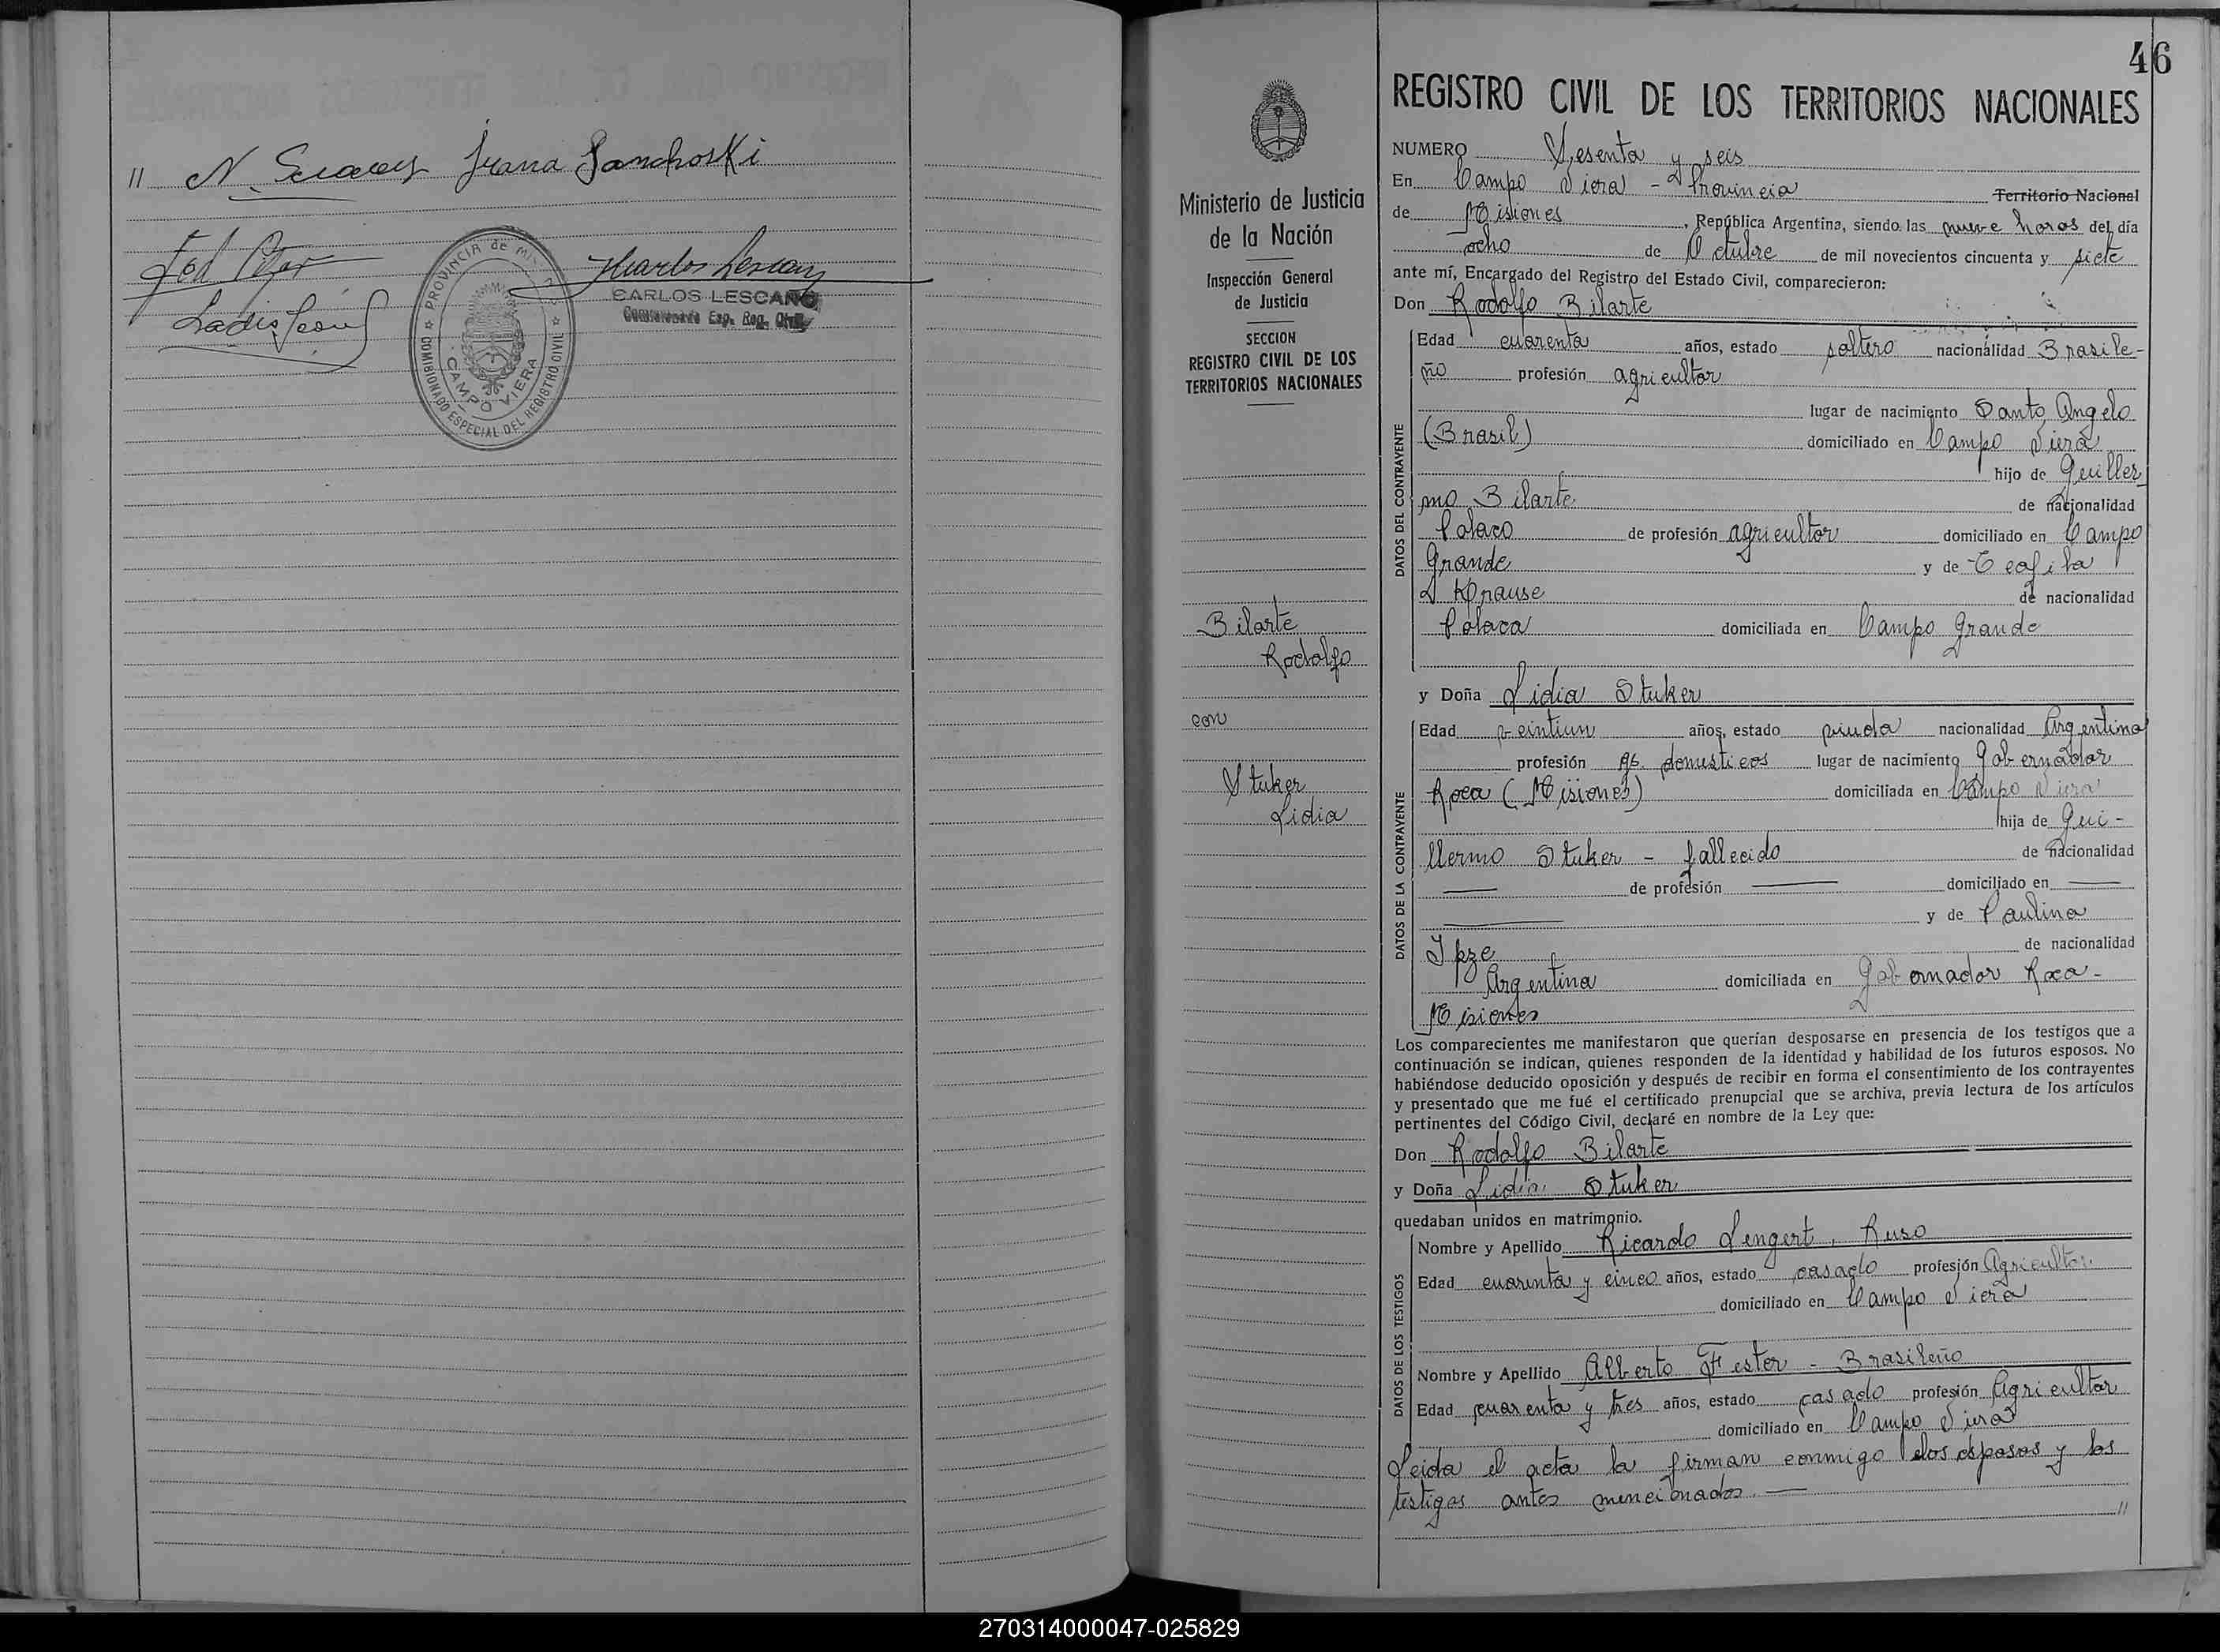 " N. Juana Sanchoski
PROVINCIA de MISIONES
COMISIONADO ESPECIAL DEL REGISTRO CIVIL
CAMPO VIERA
CARLOS LESCANO
Comisionado Esp. Reg. Civil
46
Ministerio de Justicia
de la Nación
Inspección General
de Justicia
SECCION
REGISTRO CIVIL DE LOS
TERRITORIOS NACIONALES
Bilarte
Rodolfo
con
Stuker
Lidia
REGISTRO CIVIL DE LOS TERRITORIOS NACIONALES
NUMERO Sesenta y seis
En Campo Viera - Provincia Territorio Nacional
de Misiones, República Argentina, siendo las nueve horas del día
ocho de Octubre de mil novecientos cincuenta y siete
ante mí, Encargado del Registro del Estado Civil, comparecieron:
Don Rodolfo Bilarte
DATOS DEL CONTRAYENTE
Edad cuarenta años, estado soltero nacionalidad Brasile-
ño profesión agricultor
lugar de nacimiento Santo Angelo
(Brasil) domiciliado en Campo Viera
hijo de Guiller
mo Bilarte de nacionalidad
Polaco de profesión agricultor domiciliado en Campo
Grande y de Teofila
Krause de nacionalidad
Polaca domiciliada en Campo Grande
y Doña Lidia Stuker
DATOS DE LA CONTRAYENTE
Edad veintiun años, estado viuda nacionalidad Argentina
profesión qs. domesticos lugar de nacimiento Gobernador
Roca (Misiones) domiciliada en Campo Viera
hija de Gui-
llermo Stuker - fallecido de nacionalidad
de profesión domiciliado en
y de Paulina
Ipze de nacionalidad
Argentina domiciliada en Gobernador Roca -
Misiones
Los comparecientes me manifestaron que querían desposarse en presencia de los testigos que a
continuación se indican, quienes responden de la identidad y habilidad de los futuros esposos. No
habiéndose deducido oposición y después de recibir en forma el consentimiento de los contrayentes
y presentado que me fué el certificado prenupcial que se archiva, previa lectura de los artículos
pertinentes del Código Civil, declaré en nombre de la Ley que:
Don Rodolfo Bilarte
y Doña Lidia Stuker
quedaban unidos en matrimonio.
DATOS DE LOS TESTIGOS
Nombre y Apellido Ricardo Lengert, Ruso
Edad cuarenta y cinco años, estado casado profesión Agricultor
domiciliado en Campo Viera
Nombre y Apellido Alberto Fester - Brasileño
Edad cuarenta y tres años, estado casado profesión Agricultor
domiciliado en Campo Viera
Leida el acta la firman conmigo los esposos y los
testigos antes mencionados. — "
270314000047-025829